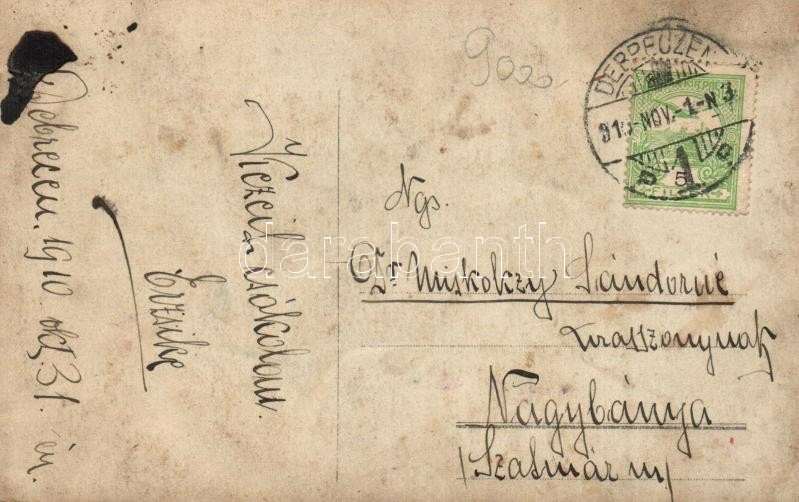 Debrecen. 1910 okt 31. én.
Kezeit csókolom
Evzike
9000
DEBRECZEN
910-NOV.-1-N3
5
Ngs.
Dr. Miskolczy Sándorné
úrasszonynak
Nagybánya
(Szatmár m)
darabanth